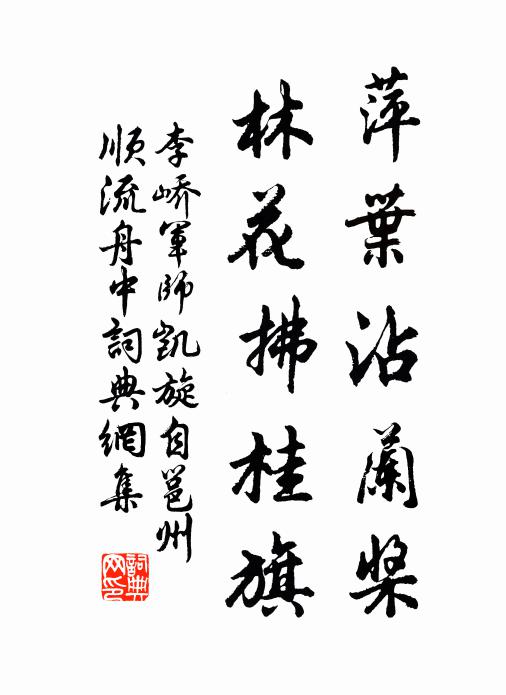 萍葉沾蘭槳
林花拂桂旗
李嶠軍師凱旋自邕州
順流舟中詞典網集
詞典
网印